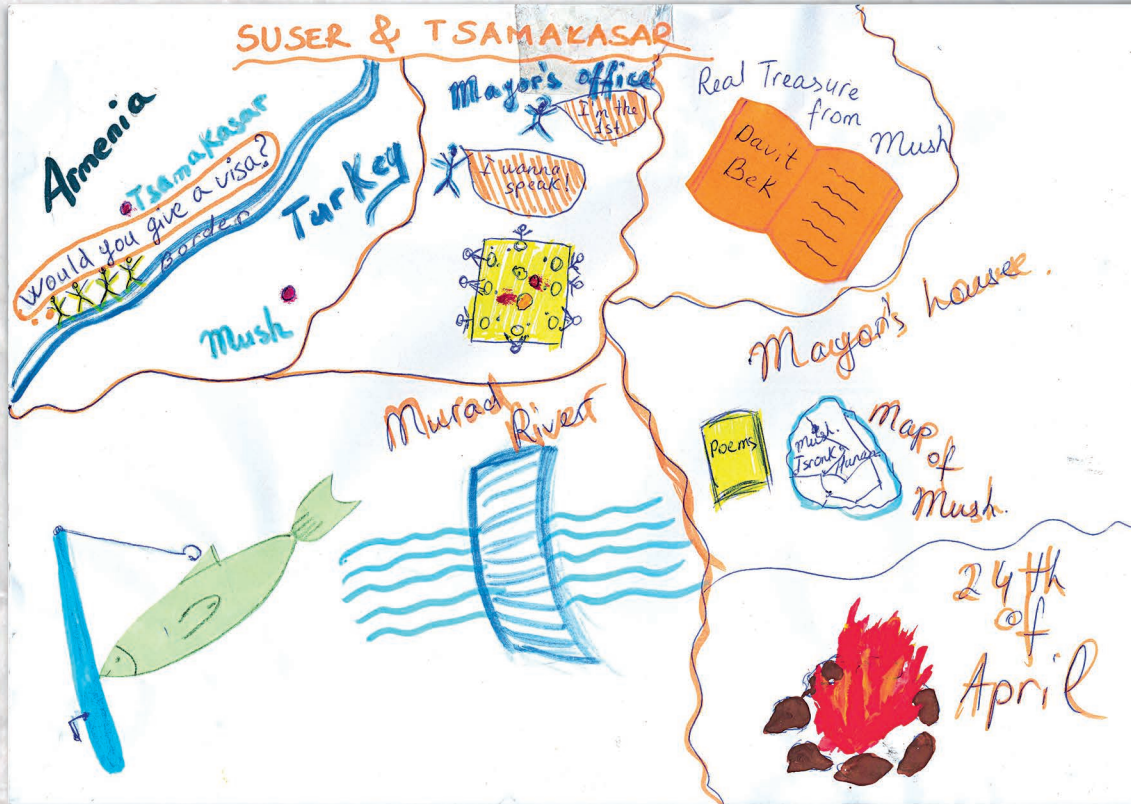 SUSER & TSAMAKASAR
Armenia
Tsamakasar
Would you give a visa?
Border
Turkey
Mush
Mayor's office
I'm the
1st
I wanna
speak!
Real Treasure
from
Mush
Davit
Bek
Mayor's housee.
Poems
Mush.
Tsronk
Map
of
Mush.
Murad
River
24th
of
April